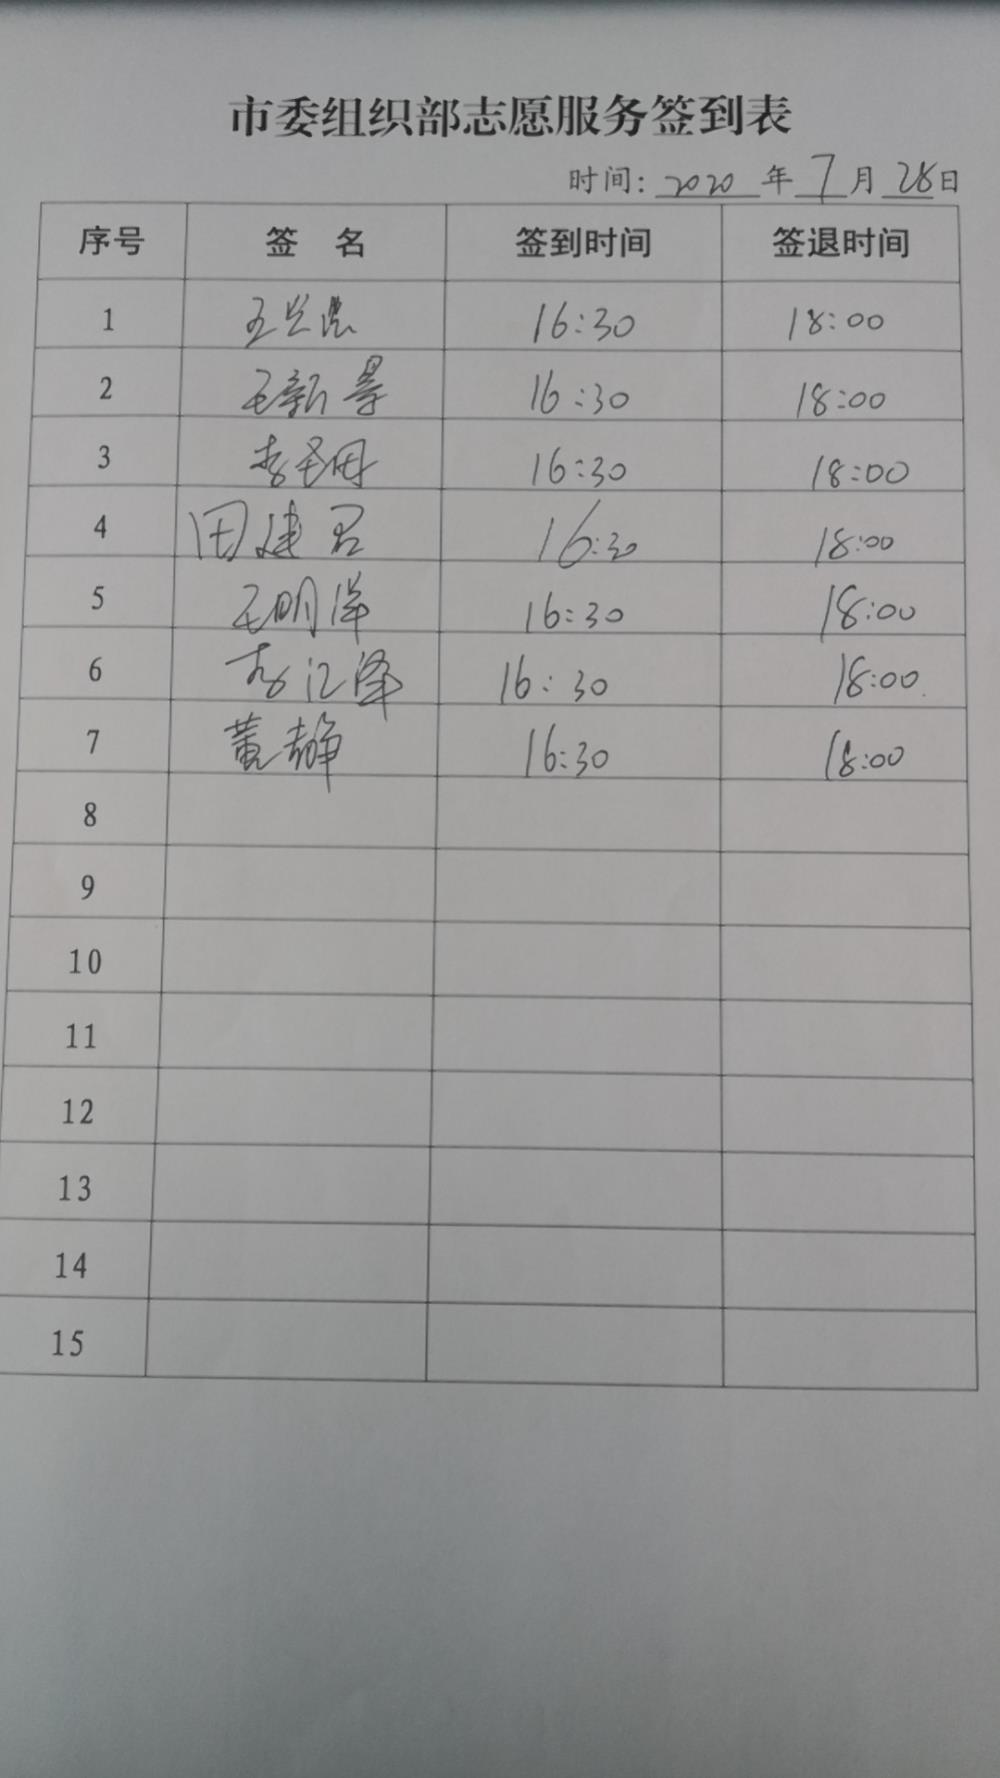 市委组织部志愿服务签到表
时间: 2020 年 7 月 28 日
序号 签 名 签到时间 签退时间
1 王兴 16:30 18:00
2 王新景 16:30 18:00
3 李 16:30 18:00
4 田建君 16:30 18:00
5 王明洋 16:30 18:00
6 李江泽 16:30 18:00
7 黄静 16:30 18:00
8
9
10
11
12
13
14
15